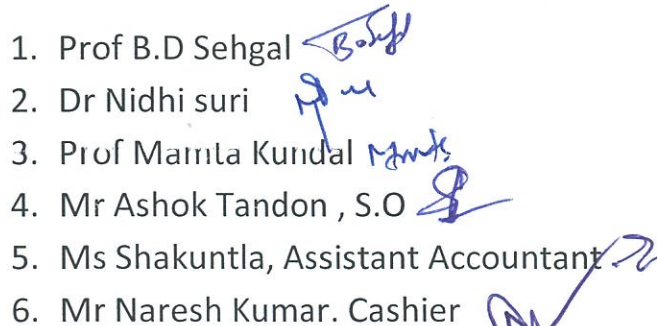 1. Prof B.D Sehgal
2. Dr Nidhi suri
3. Prof Mamta Kundal
4. Mr Ashok Tandon , S.O
5. Ms Shakuntla, Assistant Accountant
6. Mr Naresh Kumar. Cashier